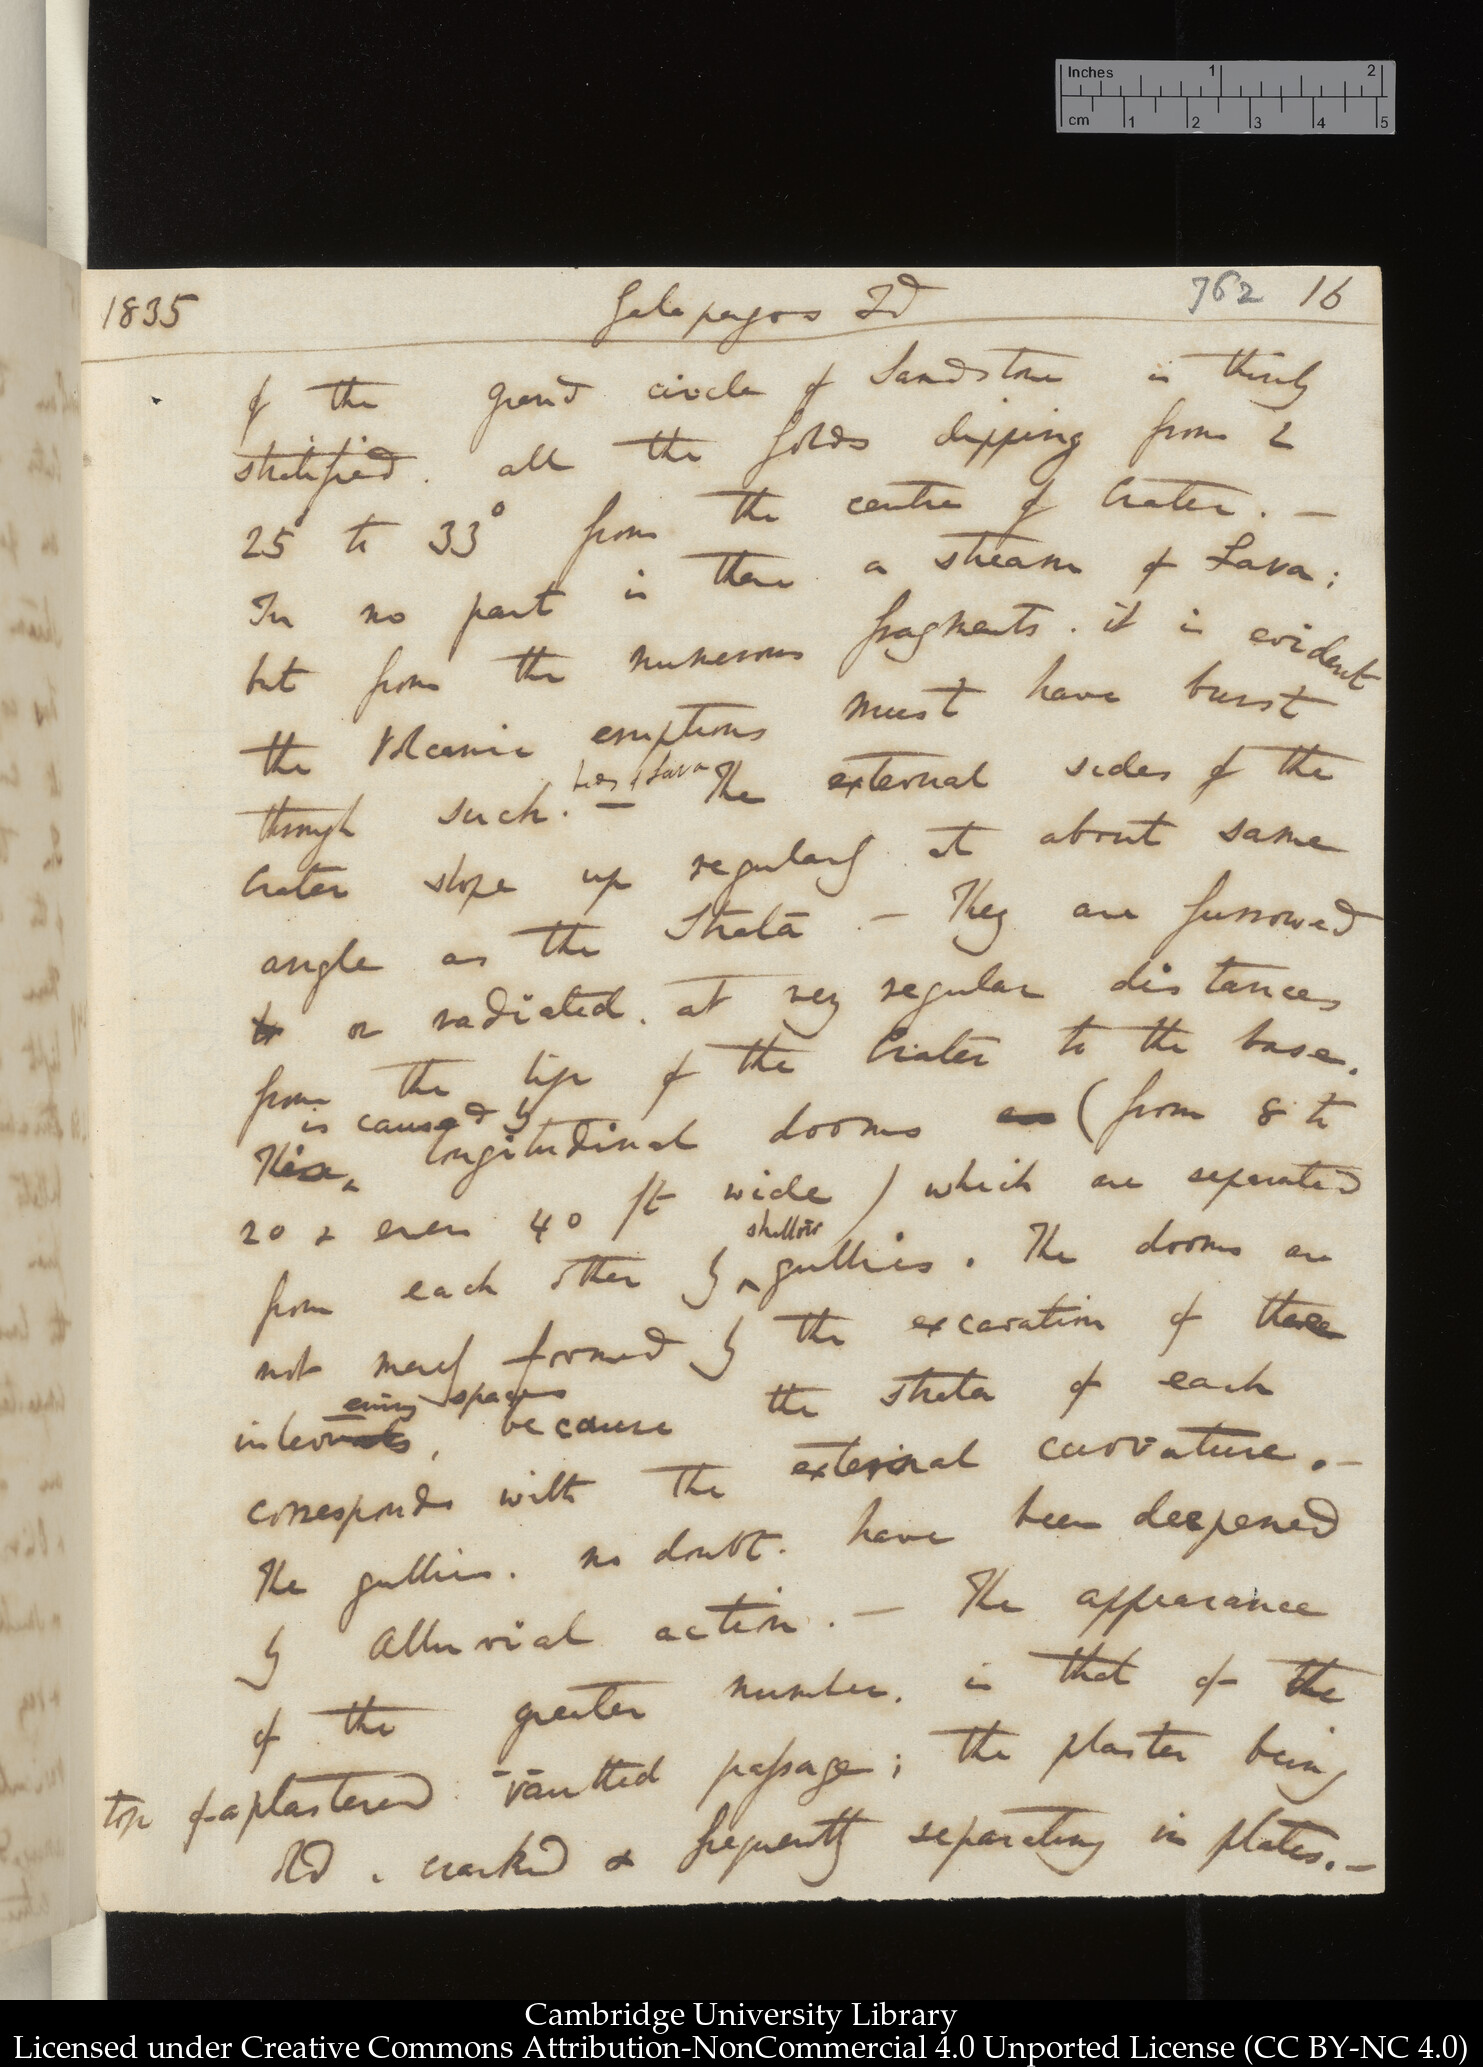 Inches 1 2
cm 1 2 3 4 5
1835 Galapagos Id 762 16
of the grand circle of Sandstone is thinly
stratified. all the folds dipping from
25° to 33° from the centre of Crater. —
In no part is there a stream of Lava;
but from the numerous fragments. it is evident
the Volcanic eruptions must have burst
Lava
through such. — The external sides of the
Crater slope up regularly at about same
angle as the Strata. — They are furrowed
or radiated. at very regular distances
from the lip of the Crater to the base.
is caused by
This longitudinal dooms (from 8 to
20 & even 40 ft wide) which are separated
shallow
from each other by gullies. The dooms are
not merely formed by the excavation of these
ening spaces
intervals, because the strata of each
corresponds with the external curvature. —
The gullies. no doubt. have been deepened
by alluvial action. — The appearance
of the greater number. is that of the
top of a plastered vaulted passage; the plaster being
old, cracked & frequently separating in plates. —
Cambridge University Library
Licensed under Creative Commons Attribution-NonCommercial 4.0 Unported License (CC BY-NC 4.0)